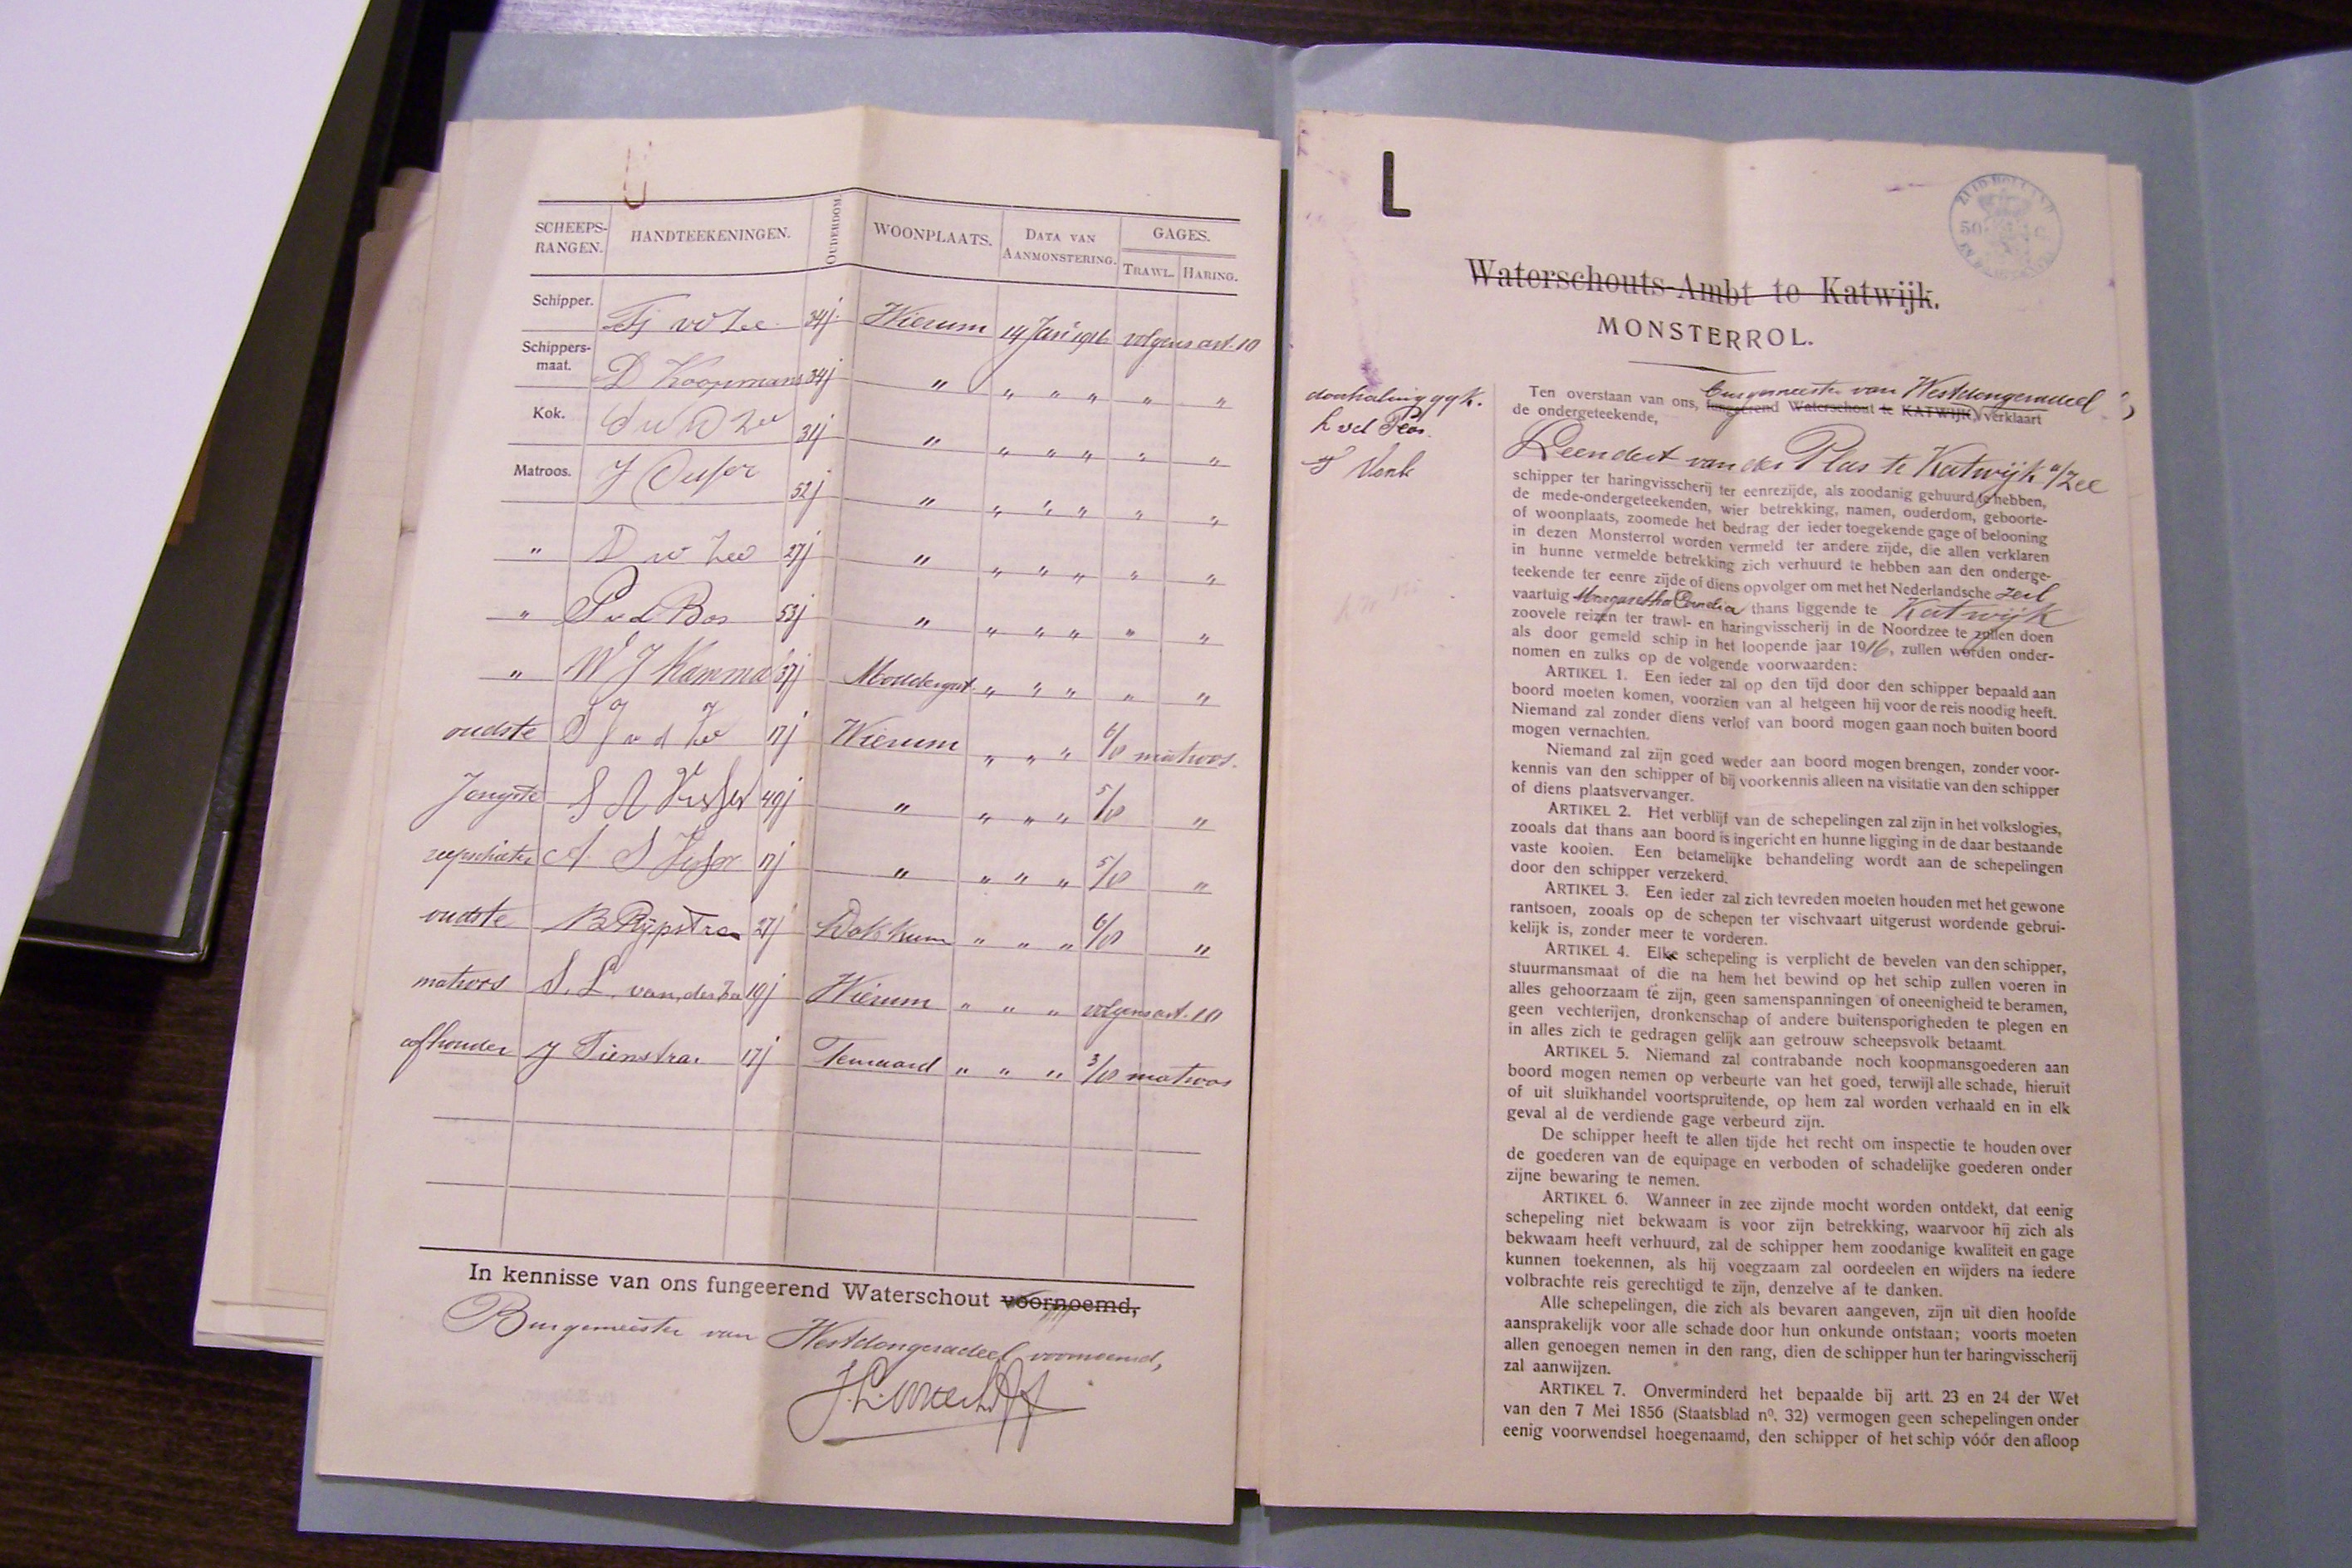 SCHEEPS-RANGEN. HANDTEEKENINGEN. OUDERDOM. WOONPLAATS. DATA VAN AANMONSTERING. GAGES. TRAWL. HARING.
Schipper. Tj vd Zee 34j. Wierum 14 Jari 1916 volgens art. 10
Schippers-maat. D Koopmans 34j " " " " " "
Kok. 31j " " " " " "
Matroos. J 52j " " " " " "
" D v Zee 27j " " " " " "
" P v d Bos 53j " " " " " "
" W J Kamma 37j " " " " "
oudste v d Zee 17j Wierum " " " 6/10 matroos.
Jongste S A Visser 49j " " " " 5/10 "
reepschieter A S Visser 17j " " " " 5/10 "
oudste B Rijpstra 27j Dokkum " " " 6/10 "
matroos S. L. van der Zee 19j Wierum " " " volgens art. 10
afhouder J Tienstra. 17j Ternaard " " " 3/10 matroos
In kennisse van ons fungeerend Waterschout voornoemd,
Burgemeester van Westdongeradeel voornoemd,
L
ZUID-HOLLAND
50 C
Waterschouts-Ambt te Katwijk.
MONSTERROL.
doorhaling ggk.
L vd Plas.
Vonk
Burgemeester van Westdongeradeel
Ten overstaan van ons, fungeerend Waterschout te KATWIJK, verklaart
de ondergeteekende,
Leendert van der Plas te Katwijk a/Zee
schipper ter haringvisscherij ter eenrezijde, als zoodanig gehuurd te hebben,
de mede-ondergeteekenden, wier betrekking, namen, ouderdom, geboorte-
of woonplaats, zoomede het bedrag der ieder toegekende gage of belooning
in dezen Monsterrol worden vermeld ter andere zijde, die allen verklaren
in hunne vermelde betrekking zich verhuurd te hebben aan den onderge-
teekende ter eenre zijde of diens opvolger om met het Nederlandsche zeil
vaartuig Margaretha Cornelia thans liggende te Katwijk
zoovele reizen ter trawl- en haringvisscherij in de Noordzee te zullen doen
als door gemeld schip in het loopende jaar 1916, zullen worden onder-
nomen en zulks op de volgende voorwaarden:
ARTIKEL 1. Een ieder zal op den tijd door den schipper bepaald aan
boord moeten komen, voorzien van al hetgeen hij voor de reis noodig heeft.
Niemand zal zonder diens verlof van boord mogen gaan noch buiten boord
mogen vernachten.
Niemand zal zijn goed weder aan boord mogen brengen, zonder voor-
kennis van den schipper of bij voorkennis alleen na visitatie van den schipper
of diens plaatsvervanger.
ARTIKEL 2. Het verblijf van de schepelingen zal zijn in het volkslogies,
zooals dat thans aan boord is ingericht en hunne ligging in de daar bestaande
vaste kooien. Een betamelijke behandeling wordt aan de schepelingen
door den schipper verzekerd.
ARTIKEL 3. Een ieder zal zich tevreden moeten houden met het gewone
rantsoen, zooals op de schepen ter vischvaart uitgerust wordende gebrui-
kelijk is, zonder meer te vorderen.
ARTIKEL 4. Elke schepeling is verplicht de bevelen van den schipper,
stuurmansmaat of die na hem het bewind op het schip zullen voeren in
alles gehoorzaam te zijn, geen samenspanningen of oneenigheid te beramen,
geen vechterijen, dronkenschap of andere buitensporigheden te plegen en
in alles zich te gedragen gelijk aan getrouw scheepsvolk betaamt.
ARTIKEL 5. Niemand zal contrabande noch koopmansgoederen aan
boord mogen nemen op verbeurte van het goed, terwijl alle schade, hieruit
of uit sluikhandel voortspruitende, op hem zal worden verhaald en in elk
geval al de verdiende gage verbeurd zijn.
De schipper heeft te allen tijde het recht om inspectie te houden over
de goederen van de equipage en verboden of schadelijke goederen onder
zijne bewaring te nemen.
ARTIKEL 6. Wanneer in zee zijnde mocht worden ontdekt, dat eenig
schepeling niet bekwaam is voor zijn betrekking, waarvoor hij zich als
bekwaam heeft verhuurd, zal de schipper hem zoodanige kwaliteit en gage
kunnen toekennen, als hij voegzaam zal oordeelen en wijders na iedere
volbrachte reis gerechtigd te zijn, denzelve af te danken.
Alle schepelingen, die zich als bevaren aangeven, zijn uit dien hoofde
aansprakelijk voor alle schade door hun onkunde ontstaan; voorts moeten
allen genoegen nemen in den rang, dien de schipper hun ter haringvisscherij
zal aanwijzen.
ARTIKEL 7. Onverminderd het bepaalde bij artt. 23 en 24 der Wet
van den 7 Mei 1856 (Staatsblad no. 32) vermogen geen schepelingen onder
eenig voorwendsel hoegenaamd, den schipper of het schip vóór den afloop